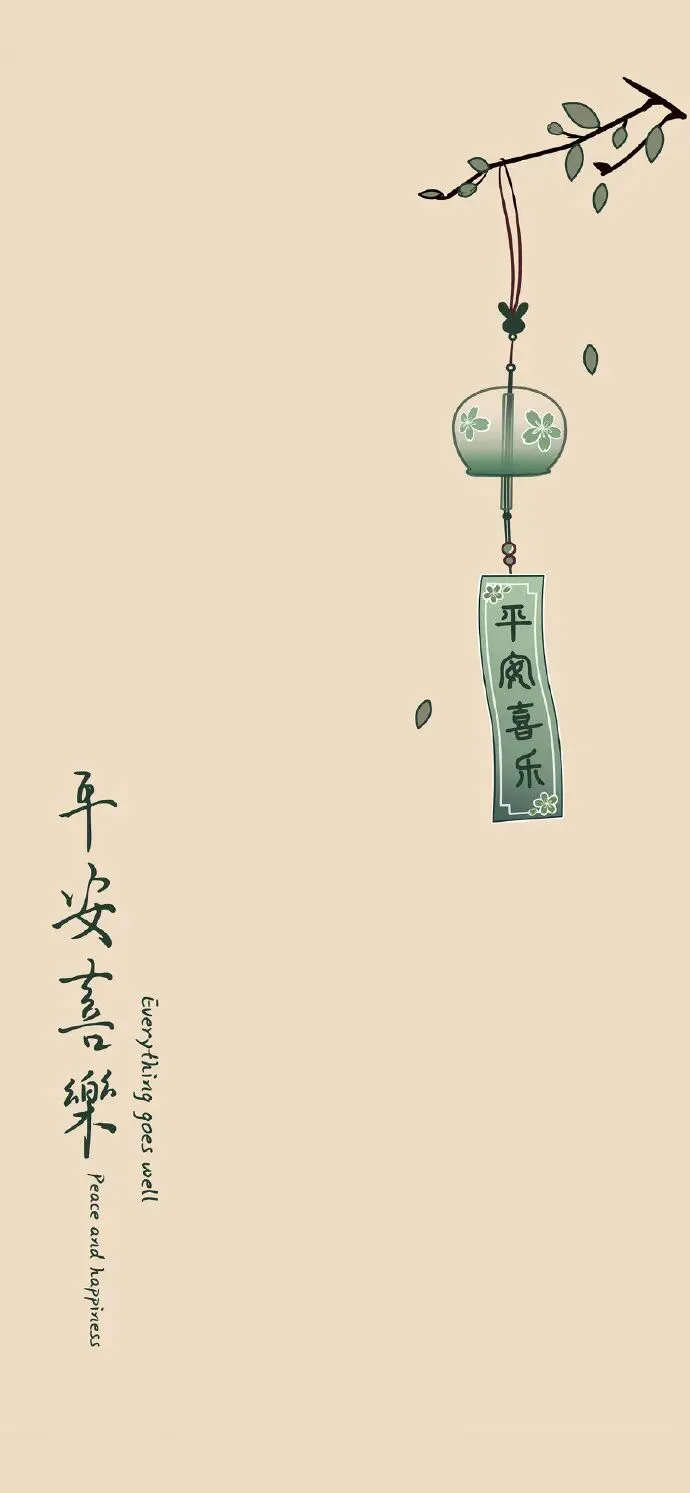 平安喜乐
平安喜樂
Everything goes well
Peace and happiness